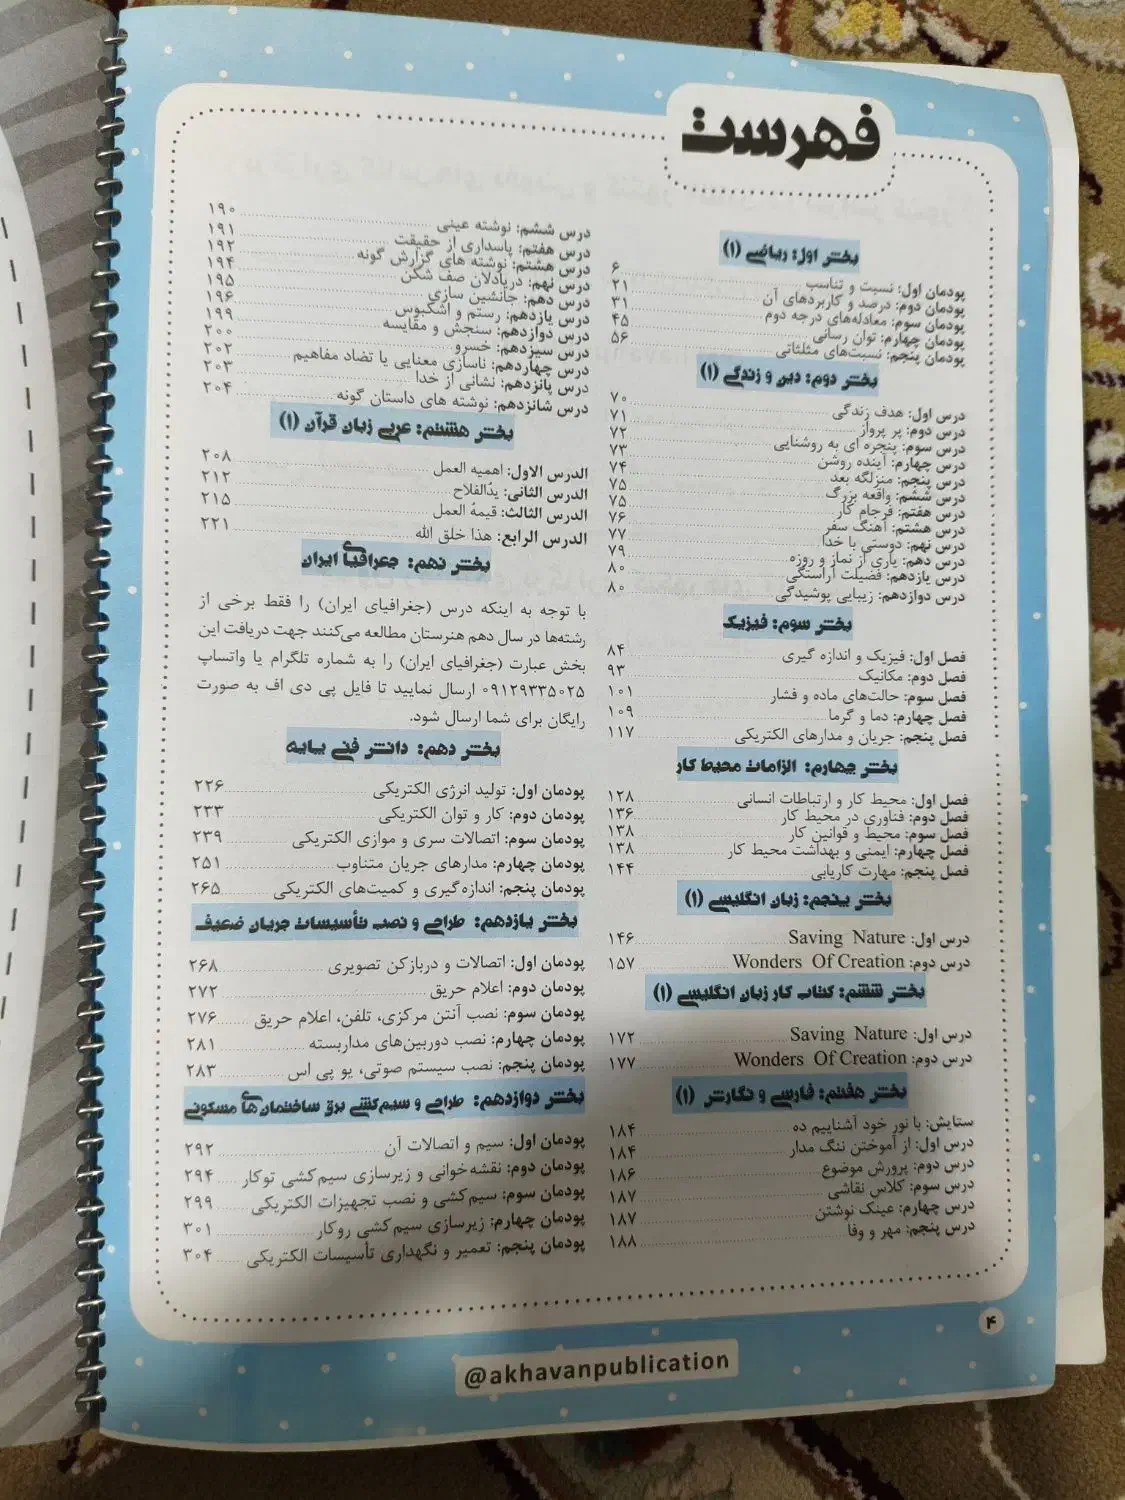 فهرست
بخش اول: ریاضی (۱)
پودمان اول: نسبت و تناسب ۶
پودمان دوم: درصد و کاربردهای آن ۲۱
پودمان سوم: معادله‌های درجه دوم ۳۱
پودمان چهارم: توان رسانی ۴۵
پودمان پنجم: نسبت‌های مثلثاتی ۵۶
بخش دوم: دین و زندگی (۱)
درس اول: هدف زندگی ۷۰
درس دوم: پر پرواز ۷۱
درس سوم: پنجره ای به روشنایی ۷۲
درس چهارم: آینده روشن ۷۳
درس پنجم: منزلگه بعد ۷۴
درس ششم: واقعه بزرگ ۷۵
درس هفتم: فرجام کار ۷۵
درس هشتم: آهنگ سفر ۷۶
درس نهم: دوستی با خدا ۷۷
درس دهم: یاری از نماز و روزه ۷۹
درس یازدهم: فضیلت آراستگی ۸۰
درس دوازدهم: زیبایی پوشیدگی ۸۰
بخش سوم: فیزیک
فصل اول: فیزیک و اندازه گیری ۸۴
فصل دوم: مکانیک ۹۳
فصل سوم: حالت‌های ماده و فشار ۱۰۱
فصل چهارم: دما و گرما ۱۰۹
فصل پنجم: جریان و مدارهای الکتریکی ۱۱۷
بخش چهارم: الزامات محیط کار
فصل اول: محیط کار و ارتباطات انسانی ۱۲۸
فصل دوم: فناوری در محیط کار ۱۳۶
فصل سوم: محیط و قوانین کار ۱۳۸
فصل چهارم: ایمنی و بهداشت محیط کار ۱۳۸
فصل پنجم: مهارت کاریابی ۱۴۴
بخش پنجم: زبان انگلیسی (۱)
درس اول: Saving Nature ۱۴۶
درس دوم: Wonders Of Creation ۱۵۷
بخش ششم: کتاب کار زبان انگلیسی (۱)
درس اول: Saving Nature ۱۷۲
درس دوم: Wonders Of Creation ۱۷۷
بخش هفتم: فارسی و نگارش (۱)
ستایش: با نور خود آشناییم ده ۱۸۴
درس اول: از آموختن ننگ مدار ۱۸۴
درس دوم: پرورش موضوع ۱۸۶
درس سوم: کلاس نقاشی ۱۸۷
درس چهارم: عینک نوشتن ۱۸۷
درس پنجم: مهر و وفا ۱۸۸
درس ششم: نوشته عینی ۱۹۰
درس هفتم: پاسداری از حقیقت ۱۹۱
درس هشتم: نوشته های گزارش گونه ۱۹۲
درس نهم: دریادلان صف شکن ۱۹۴
درس دهم: جانشین سازی ۱۹۵
درس یازدهم: رستم و اشکبوس ۱۹۶
درس دوازدهم: سنجش و مقایسه ۱۹۹
درس سیزدهم: خسرو ۲۰۰
درس چهاردهم: ناسازی معنایی یا تضاد مفاهیم ۲۰۲
درس پانزدهم: نشانی از خدا ۲۰۳
درس شانزدهم: نوشته های داستان گونه ۲۰۴
بخش هشتم: عربی زبان قرآن (۱)
الدرس الاول: اهمیه العمل ۲۰۸
الدرس الثانی: یدُالفلاح ۲۱۲
الدرس الثالث: قیمهٔ العمل ۲۱۵
الدرس الرابع: هذا خلق الله ۲۲۱
بخش نهم: جغرافیای ایران
با توجه به اینکه درس (جغرافیای ایران) را فقط برخی از
رشته‌ها در سال دهم هنرستان مطالعه می‌کنند جهت دریافت این
بخش عبارت (جغرافیای ایران) را به شماره تلگرام یا واتساپ
۰۹۱۲۹۳۳۵۰۲۵ ارسال نمایید تا فایل پی دی اف به صورت
رایگان برای شما ارسال شود.
بخش دهم: دانش فنی پایه
پودمان اول: تولید انرژی الکتریکی ۲۲۶
پودمان دوم: کار و توان الکتریکی ۲۳۳
پودمان سوم: اتصالات سری و موازی الکتریکی ۲۳۹
پودمان چهارم: مدارهای جریان متناوب ۲۵۱
پودمان پنجم: اندازه‌گیری و کمیت‌های الکتریکی ۲۶۵
بخش یازدهم: طراحی و نصب تأسیسات جریان ضعیف
پودمان اول: اتصالات و دربازکن تصویری ۲۶۸
پودمان دوم: اعلام حریق ۲۷۲
پودمان سوم: نصب آنتن مرکزی، تلفن، اعلام حریق ۲۷۶
پودمان چهارم: نصب دوربین‌های مداربسته ۲۸۱
پودمان پنجم: نصب سیستم صوتی، یو پی اس ۲۸۳
بخش دوازدهم: طراحی و سیم‌کشی برق ساختمان‌های مسکونی
پودمان اول: سیم و اتصالات آن ۲۹۲
پودمان دوم: نقشه‌خوانی و زیرسازی سیم‌کشی توکار ۲۹۴
پودمان سوم: سیم‌کشی و نصب تجهیزات الکتریکی ۲۹۹
پودمان چهارم: زیرسازی سیم‌کشی روکار ۳۰۱
پودمان پنجم: تعمیر و نگهداری تأسیسات الکتریکی ۳۰۴
۴
@akhavanpublication